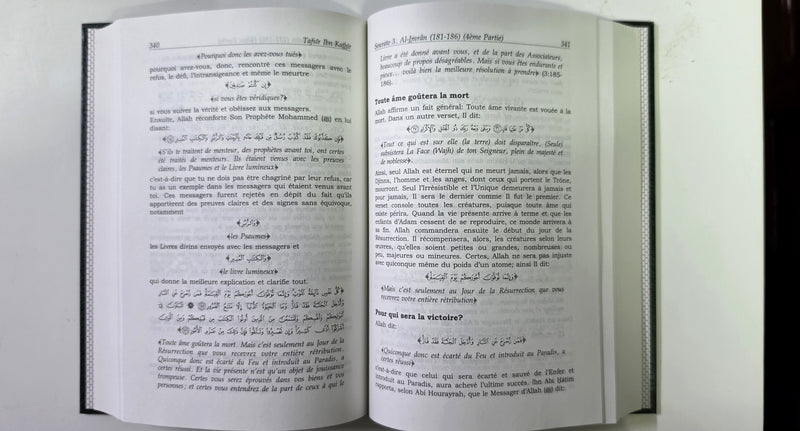 340 Tafsîr Ibn Kathîr
﴾Pourquoi donc les avez-vous tués﴿
pourquoi avez-vous, donc, rencontré ces messagers avec le
refus, le défi, l'intransigeance et même le meurtre
﴿إِن كُنتُمْ صَٰدِقِينَ﴾
﴾si vous êtes véridiques?﴿
si vous suivez la vérité et obéissez aux messagers.
Ensuite, Allah réconforte Son Prophète Mohammed (ﷺ) en lui
disant:
﴿فَإِن كَذَّبُوكَ فَقَدْ كُذِّبَ رُسُلٌ مِّن قَبْلِكَ جَآءُو بِٱلْبَيِّنَٰتِ وَٱلزُّبُرِ وَٱلْكِتَٰبِ ٱلْمُنِيرِ﴾
﴾S'ils te traitent de menteur, des prophètes avant toi, ont certes
été traités de menteurs. Ils étaient venus avec les preuves
claires, les Psaumes et le Livre lumineux﴿
c'est-à-dire que tu ne dois pas être chagriné par leur refus, car
tu as un exemple dans les messagers qui étaient venus avant
toi. Ces messagers furent rejetés en dépit du fait qu'ils
apportèrent des preuves claires et des signes sans équivoque,
notamment
﴿وَٱلزُّبُرِ﴾
﴾les Psaumes﴿
les Livres divins envoyés avec les messagers et
﴿وَٱلْكِتَٰبِ ٱلْمُنِيرِ﴾
﴾le livre lumineux﴿
qui donne la meilleure explication et clarifie tout.
﴿كُلُّ نَفْسٍ ذَآئِقَةُ ٱلْمَوْتِ وَإِنَّمَا تُوَفَّوْنَ أُجُورَكُمْ يَوْمَ ٱلْقِيَٰمَةِ فَمَن زُحْزِحَ عَنِ ٱلنَّارِ
وَأُدْخِلَ ٱلْجَنَّةَ فَقَدْ فَازَ وَمَا ٱلْحَيَوٰةُ ٱلدُّنْيَآ إِلَّا مَتَٰعُ ٱلْغُرُورِ لَتُبْلَوُنَّ فِىٓ
أَمْوَٰلِكُمْ وَأَنفُسِكُمْ وَلَتَسْمَعُنَّ مِنَ ٱلَّذِينَ أُوتُوا۟ ٱلْكِتَٰبَ مِن قَبْلِكُمْ وَمِنَ ٱلَّذِينَ
أَشْرَكُوٓا۟ أَذًى كَثِيرًا وَإِن تَصْبِرُوا۟ وَتَتَّقُوا۟ فَإِنَّ ذَٰلِكَ مِنْ عَزْمِ ٱلْأُمُورِ﴾
﴾Toute âme goûtera la mort. Mais c'est seulement au Jour de la
Résurrection que vous recevrez votre entière rétribution.
Quiconque donc est écarté du Feu et introduit au Paradis, a
certes réussi. Et la vie présente n'est qu'un objet de jouissance
trompeuse. Certes vous serez éprouvés dans vos biens et vos
personnes; et certes vous entendrez de la part de ceux à qui le
Sourate 3. Al-Imrân (181-186) (4ème Partie) 341
Livre a été donné avant vous, et de la part des Associateurs,
beaucoup de propos désagréables. Mais si vous êtes endurants et
pieux... voilà bien la meilleure résolution à prendre﴿ (3:185-
186).
Toute âme goûtera la mort
Allah affirme un fait général: Toute âme vivante est vouée à la
mort. Dans un autre verset, Il dit:
﴿كُلُّ مَنْ عَلَيْهَا فَانٍ وَيَبْقَىٰ وَجْهُ رَبِّكَ ذُو ٱلْجَلَٰلِ وَٱلْإِكْرَامِ﴾
﴾Tout ce qui est sur elle (la terre) doit disparaître, (Seule)
subsistera La Face (Wajh) de ton Seigneur, plein de majesté et
de noblesse﴿.
Ainsi, seul Allah est éternel qui ne meurt jamais, alors que les
Djinns, l'homme et les anges, dont ceux qui portent le Trône,
mourront. Seul l'Irrésistible et l'Unique demeurera à jamais et
pour jamais, Il sera le dernier comme Il fut le premier. Ce
verset console toutes les créatures, puisque toute âme qui
existe périra. Quand la vie présente arrive à terme et que les
enfants d'Adam cessent de se reproduire, ce monde arrivera à
sa fin. Allah commandera ensuite le début du jour de la
Résurrection. Il récompensera, alors, les créatures selon leurs
œuvres, qu'elles soient petites ou grandes, nombreuses ou
peu, majeures ou mineures. Certes, Allah ne sera pas injuste
avec quiconque même du poids d'un atome; ainsi Il dit:
﴿وَإِنَّمَا تُوَفَّوْنَ أُجُورَكُمْ يَوْمَ ٱلْقِيَٰمَةِ﴾
﴾Mais c'est seulement au Jour de la Résurrection que vous
recevrez votre entière rétribution﴿
Pour qui sera la victoire?
Allah dit:
﴿فَمَن زُحْزِحَ عَنِ ٱلنَّارِ وَأُدْخِلَ ٱلْجَنَّةَ فَقَدْ فَازَ﴾
﴾Quiconque donc est écarté du Feu et introduit au Paradis, a
certes réussi﴿
c'est-à-dire que celui qui sera écarté et sauvé de l'Enfer et
introduit au Paradis, aura achevé l'ultime succès. Ibn Abi Hâtim
rapporta, selon Abi Hourayrah, que le Messager d'Allah (ﷺ) dit: